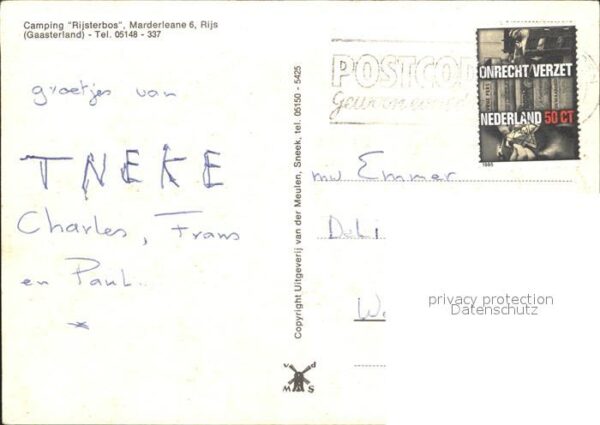 Camping "Rijsterbos", Marderleane 6, Rijs
(Gaasterland) - Tel. 05148 - 337
groetjes van
TNEKE
Charles, Frans
en Paul.
Copyright Uitgeverij van der Meulen, Sneek, tel. 05150 - 5425
v d
M S
POSTCOD
ONRECHT/VERZET
NEDERLAND 50 CT
1985
mw Emmer
privacy protection
Datenschutz